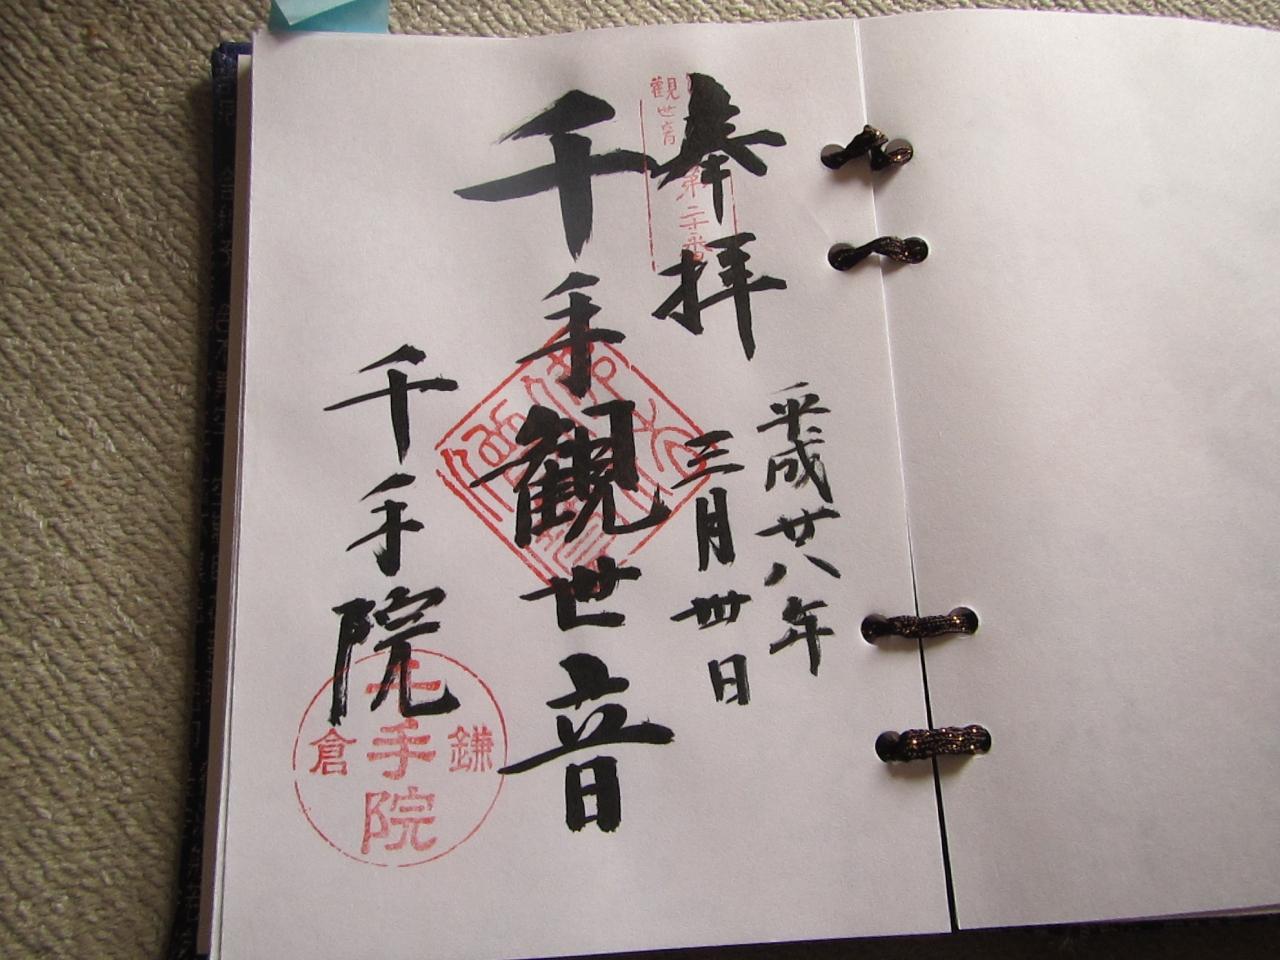 奉拝
平成廿八年
三月卅日
千手観世音
千手院
観世音
第二十番
鎌倉
千手院